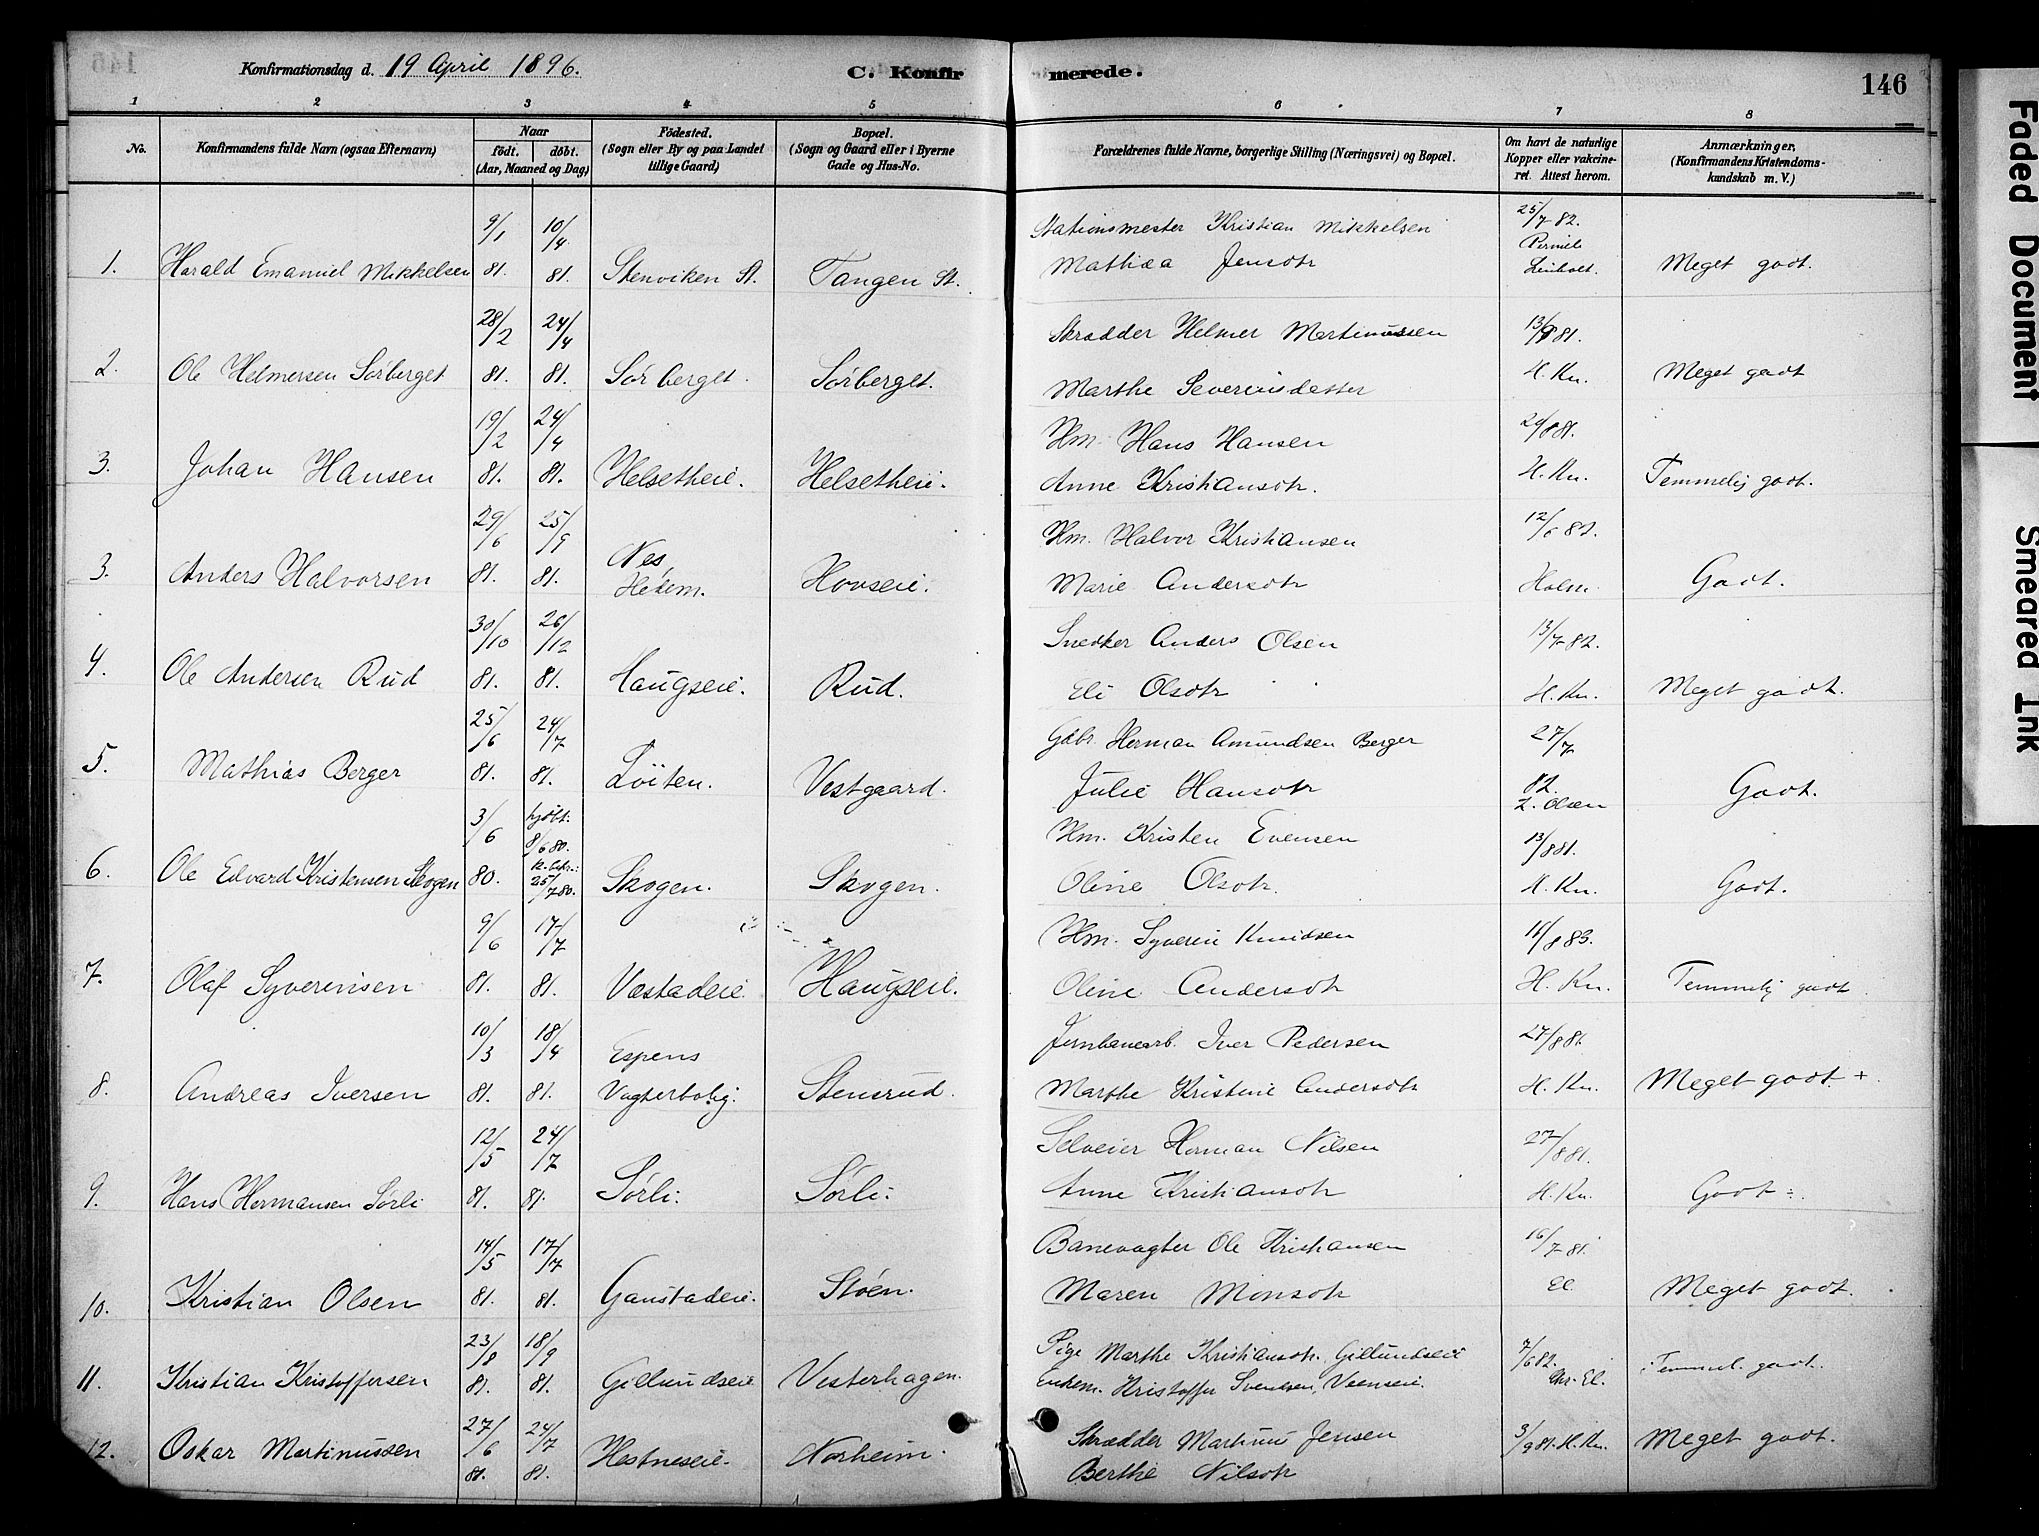 Konfirmationsdag d. 19 April 1896.
C. Konfirmerede.
146
1 2 3 4 5 6 7 8
No.
Konfirmandens fulde Navn (ogsaa Efternavn)
Naar
født. døbt.
(Aar, Maaned og Dag)
Fødested.
(Sogn eller By og paa Landet
tillige Gaard)
Bopæl.
(Sogn og Gaard eller i Byerne
Gade og Hus-No.
Forældrenes fulde Navne, borgerlige Stilling (Næringsvei) og Bopæl.
Om havt de naturlige
Kopper eller vakcine-
ret. Attest herom.
Anmærkninger,
(Konfirmandens Kristendoms-
kundskab m. V.)
9/1 10/4 Stationsmester Kristian Mikkelsen 25/7 82.
1. Harald Emanuel Mikkelsen 81. 81. Stenviken St. Tangen St. Mathea Jensdtr Meget godt.
28/2 24/4 Skrædder Helmer Martinussen 13/9 81.
2. Ole Helmersen Sørberget 81. 81. Sørberget. Sørberget. Marthe Severinsdatter H. Kn. Meget godt
19/2 24/4 Hm. Hans Hansen 29/8 81.
3. Johan Hansen 81. 81. Helsetheie. Helsetheie. Anne Kristiansdtr. H. Kn. Temmelig godt.
29/6 25/9 Hm. Halvor Kristiansen 12/6 82.
3. Anders Halvorsen 81. 81. Nes, Hedem. Hovseie. Marie Andersdtr Godt.
30/10 26/12 Snedker Anders Olsen 13/7 82.
4. Ole Andersen Rud 81. 81. Haugseie. Rud. Eli Olsdtr H. Kn. Meget godt.
25/6 24/7 Gdbr. Herman Amundsen Berger 27/7
5. Mathias Berger 81. 81. Løiten. Vestgaard. Julie Hansdtr 82. Z. Olsen Godt.
3/6 hjdøbt. 8/6 80. Hm. Kristen Evensen 13/8 81.
6. Ole Edvard Kristensen Skogen 80. 25/7 80. Skogen. Skogen. Oline Olsdtr. H. Kn. Godt.
9/6 17/7 Hm. Syverin Knudsen 11/8 83.
7. Olaf Syverinsen 81. 81. Vestadeie. Haugseie. Oline Andersdtr H. Kn. Temmelig godt.
10/3 18/4 Espens Jernbanearb. Iver Pedersen 27/8 81.
8. Andreas Iversen 81. 81. Vagterbolig. Stensrud. Marthe Kristine Andersdtr H. Kn. Meget godt +
12/5 24/7 Selveier Herman Nilsen 27/8 81.
9. Hans Hermansen Sørli 81. 81. Sørli. Sørli. Anne Kristiansdtr H. Kn. Godt ÷.
14/5 17/7 Banevagter Ole Kristiansen 16/7 81.
10. Kristian Olsen 81. 81. Gaustadeie. Støen. Maren Monsdtr El. Meget godt.
23/8 18/9 Pige Marthe Kristiansdtr. Gillundseie 7/6 82.
11. Kristian Kristoffersen 81. 81. Gillundseie Vesterhagen. Enkem. Kristoffer Svendsen, Veenseie. Chr. El. Temmel. godt.
27/6 24/7 Skrædder Martinus Jensen
12. Oskar Martinussen 81. 81. Hestneseie. Norheim. Berthe Nilsdtr 3/9 81. H. Kn. Meget godt.
Faded Document
Smeared Ink